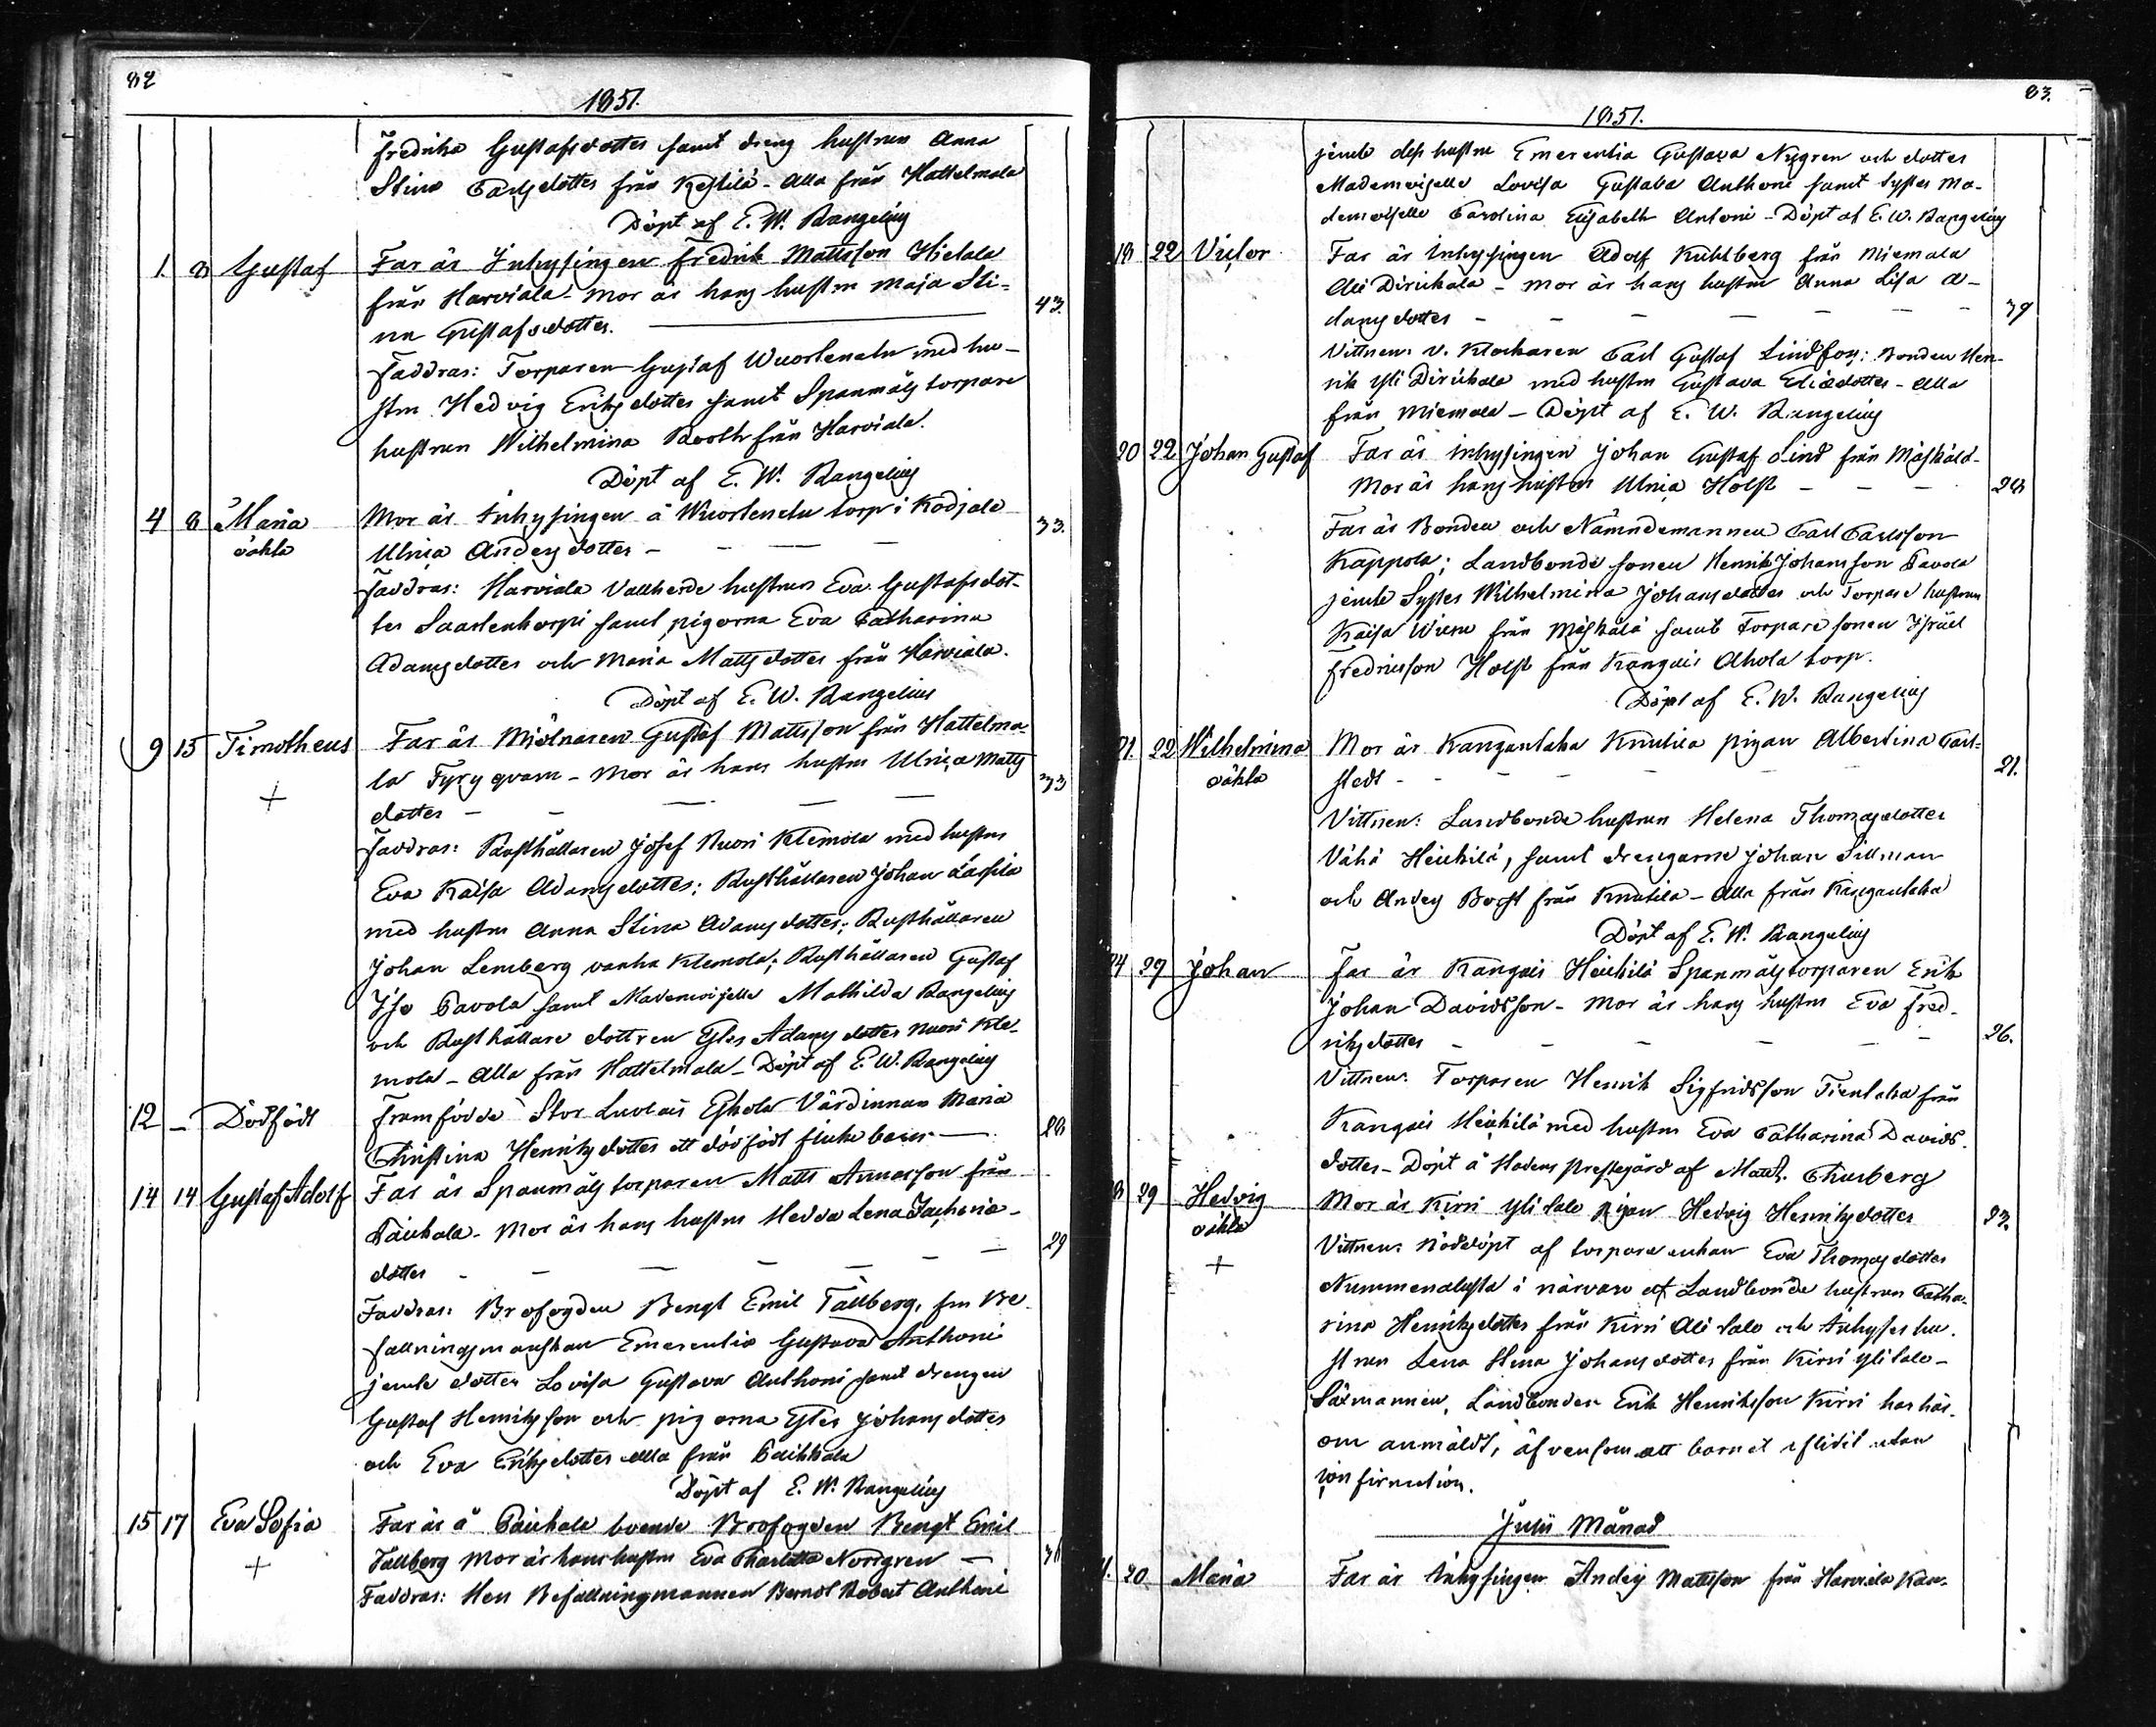 82
1851.
Fredrika Gustafsdotter samt dreng hustrun Anna
Stina Carlsdotter från Kestilä - Alla från Hattelmala
Döpt af E. W. Rangelius
1. 8 Gustaf Far är Inhysingen Fredrik Mattsson Hietala
från Harviala - Mor är hans hustru Maja Sti- 43.
na Gustafsdotter.
Faddrar: Torparen Gustaf Wuorlenalu med hu-
stru Hedvig Eriksdotter samt Spanmåls torpare
hustrun Wilhelmina Rooth från Harviala.
Döpt af E. W. Rangelius
4 8 Maria Mor är Inhysingen å Wuorlenalu torp i Kodjala 33.
oäkta Ulrica Andersdotter -
Faddrar: Harviala Vallherde hustrun Eva Gustafsdot-
ter Saarlenkorpi samt pigorna Eva Catharina
Adamsdotter och Maria Mattsdotter från Harviala.
Döpt af E. W. Rangelius
9 15 Timotheus Far är Mjölnaren Gustaf Mattsson från Hattelma-
+ la Fyry qvarn - Mor är hans hustru Ulrica Matts 33
dotter -
Faddrar: Rusthållaren Josef Nuori Klemola med hustru
Eva Kaisa Adamsdotter; Rusthållaren Johan Larfila
med hustru Anna Stina Adamsdotter; Rusthållaren
Johan Lemberg vanha Klemola; Rusthållaren Gustaf
Iso Pavola samt Mademoiselle Mathilda Rangelius
och Rusthållare dottren Ester Adams dotter Nuori Kle-
mola - Alla från Hattelmala - Döpt af E. W. Rangelius
12 - Dödfödt Framfödde Stor Luolais Eskola Värdinnan Maria 28
Christina Henriksdotter ett dödfödt flicke barn -
14 14 Gustaf Adolf Far är Spanmåls torparen Matts Annasson från
Päikälä - Mor är hans hustru Hedda Lena Zacharie- 29
dotter -
Faddrar: Brofogden Bengt Emil Tallberg, fru Be-
fallningsmanskan Emerentia Gustava Anthoni
jemte dotter Lovisa Gustava Anthoni samt drengen
Gustaf Henriksson och pigorna Ester Johansdotter
och Eva Eriksdotter alla från Päikkälä
Döpt af E. W. Rangelius
15 17 Eva Sofia Far är å Päikälä boende Brofogden Bengt Emil
+ Tallberg Mor är hans hustru Eva Charlotta Norrgren -
Faddrar: Herr Befallningmannen Berndt Robert Anthoni
83.
1851.
jemte dess hustru Emerentia Gustava Nygren och dotter
Mademoiselle Lovisa Gustava Anthoni samt Syster Ma-
demoiselle Carolina Elisabeth Antoni - Döpt af E. W. Rangelius
18 22 Victor Far är Inhysingen Adolf Kuhlberg från Miemala
Ali Dirickala - Mor är hans hustru Anna Lisa A-
damsdotter - 39
Vittnen: v. Klockaren Carl Gustaf Lindfors: Bonden Hen-
rik Yli Dirickala med hustru Gustava Eliædotter - Alla
från Miemala - Döpt af E. W. Rangelius
20 22 Johan Gustaf Far är inhysingen Johan Gustaf Lind från Mäskälä -
Mor är hans hustru Ulrica Holst - 28
Far är Bonden och Nämndemannen Carl Carlsson
Kappola; Landbonde sonen Henrik Johansson Pavola
jemte Syster Wilhelmina Johansdotter och Torpare hustrun
Kaisa Wirén från Mäskälä samt Torpare sonen Israel
Fredriksson Holst från Kangais Ahola torp.
Döpt af E. W. Rangelius
21. 22 Wilhelmina Mor är Kangantaka Knutila pigan Albertina Carl-
oäkta stedt - 21.
Vittnen: Landbonde hustrun Helena Thomasdotter
Vähä Heikilä, samt drengarne Johan Sillman
och Anders Bogst från Knutila - Alla från Kangantaka
Döpt af E. W. Rangelius
24 29 Johan Far är Kangais Heikilä Spanmåls torparen Erik
Johan Davidsson - Mor är hans hustru Eva Fred-
riksdotter - 26.
Vittnen: Torparen Henrik Sigfridsson Tientaka från
Kangais Heikilä med hustru Eva Catharina Davids
dotter - Döpt å Hodens Prestegård af Matth. Thusberg
28 29 Hedvig Mor är Kirri Yli talo pigan Hedvig Henriksdotter 23.
oäkta Vittnen: Nöddöpt af torpare enkan Eva Thomasdotter
+ Nummenalusta i närvaro af Landbonde hustrun Catha-
rina Henriksdotter från Kirri Ali talo och Inhyses hu-
strun Lena Stina Johansdotter från Kirri Yli talo -
Säxmannen, Landbonden Erik Henriksson Kirri har här-
om anmäldt, äfvensom att barnet aflidit utan
confirmation.
Julii Månad
1. 20. Maria Far är Inhysingen Anders Mattsson från Harviala Kan-